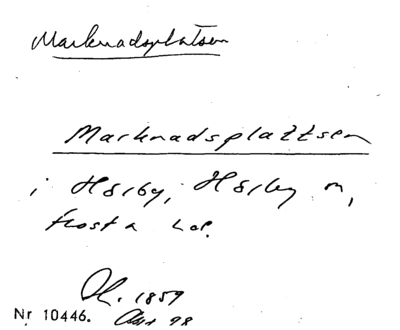 Marknadsplatsen
Marknadsplattsen
i Hörby, Hörby sn,
Frosta hd.
1859
Nr 10446. 98